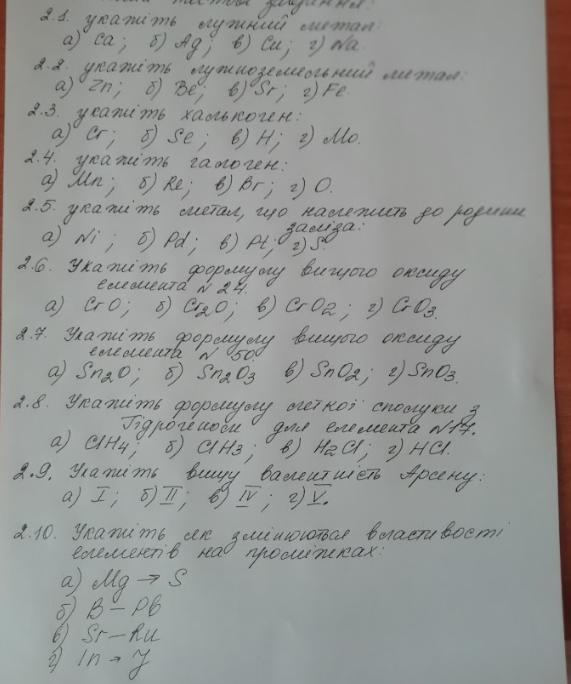 тестові завдання:
2.1. укажіть лужний метал:
а) Ca; б) Ag; в) Cu; г) Na.
2.2. укажіть лужноземельний метал:
а) Zn; б) Be; в) Sr; г) Fe.
2.3. укажіть халькоген:
а) Cr; б) Se; в) H; г) Mo.
2.4. укажіть галоген:
а) Mn; б) Re; в) Br; г) O.
2.5. укажіть метал, що належить до родини
заліза:
а) Ni; б) Pd; в) Pt; г) S.
2.6. Укажіть формулу вищого оксиду
елемента N 24.
а) CrO; б) Cr2O; в) CrO2; г) CrO3.
2.7. Укажіть формулу вищого оксиду
елемента N 50.
а) Sn2O; б) Sn2O3 в) SnO2; г) SnO3.
2.8. Укажіть формулу леткої сполуки з
Гідрогеном для елемента N17.
а) ClH4; б) ClH3; в) H2Cl; г) HCl.
2.9. Укажіть вищу валентність Арсену:
а) I; б) II; в) IV; г) V.
2.10. Укажіть як змінюються властивості
елементів на проміжках:
а) Mg → S
б) B – Pb
в) Sr – Ru
г) In → J